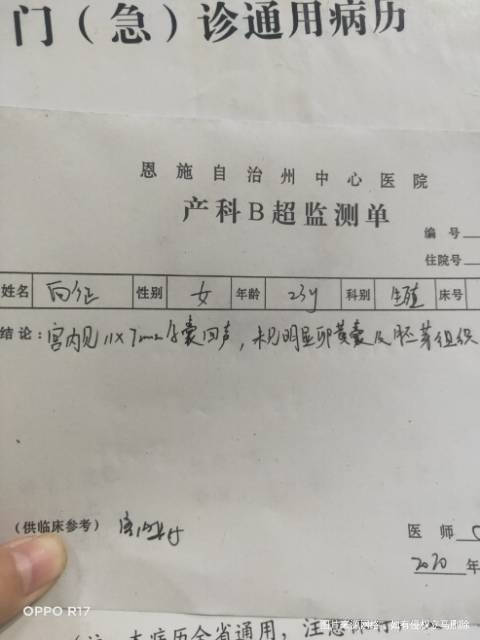 门（急）诊通用病历
恩施自治州中心医院
产科B超监测单
编号
住院号
姓名 向征 性别 女 年龄 23y 科别 生殖 床号
结论：宫内见11×7mm孕囊回声，未见明显卵黄囊及胚芽组织
（供临床参考）
医师
2020年
OPPO R17
图片来源网络，如有侵权立马删除
本病历全省通用，注意保